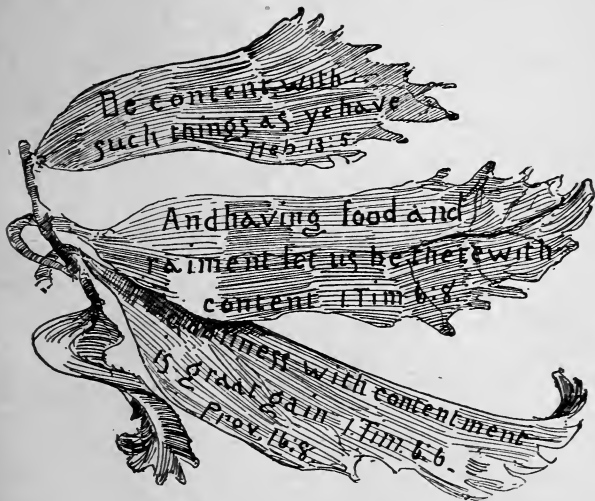 Be content with
such things as ye have
Heb. 13:5.
And having food and
raiment let us be therewith
content. 1 Tim 6.8.
Godliness with contentment
is great gain. 1 Tim. 6.6.
Prov. 16.8.